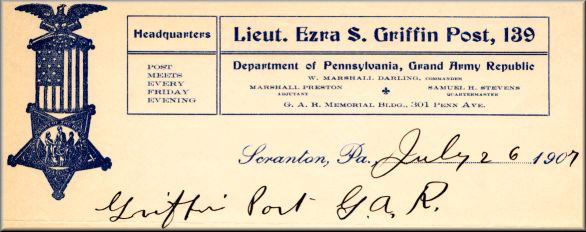 Headquarters
POST
MEETS
EVERY
FRIDAY
EVENING
Lieut. Ezra S. Griffin Post, 139
Department of Pennsylvania, Grand Army Republic
W. MARSHALL DARLING, COMMANDER
MARSHALL PRESTON SAMUEL H. STEVENS
ADJUTANT QUARTERMASTER
G. A. R. MEMORIAL BLDG., 301 PENN AVE.
Scranton, Pa., July 26 1907
Griffin Post G. A. R.